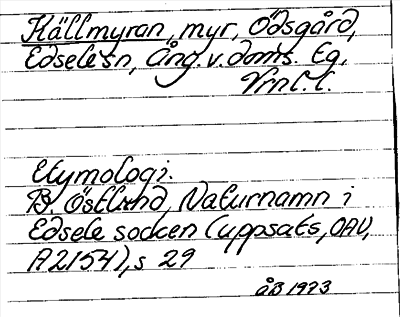 Källmyran, myr, Ödsgård,
Edsele sn, Ång. v. doms. Eg.
Vrnl. l.
Etymologi.
B. Östlund, Naturnamn i
Edsele socken (uppsats, OAU,
A2154), s 29
åB 1973